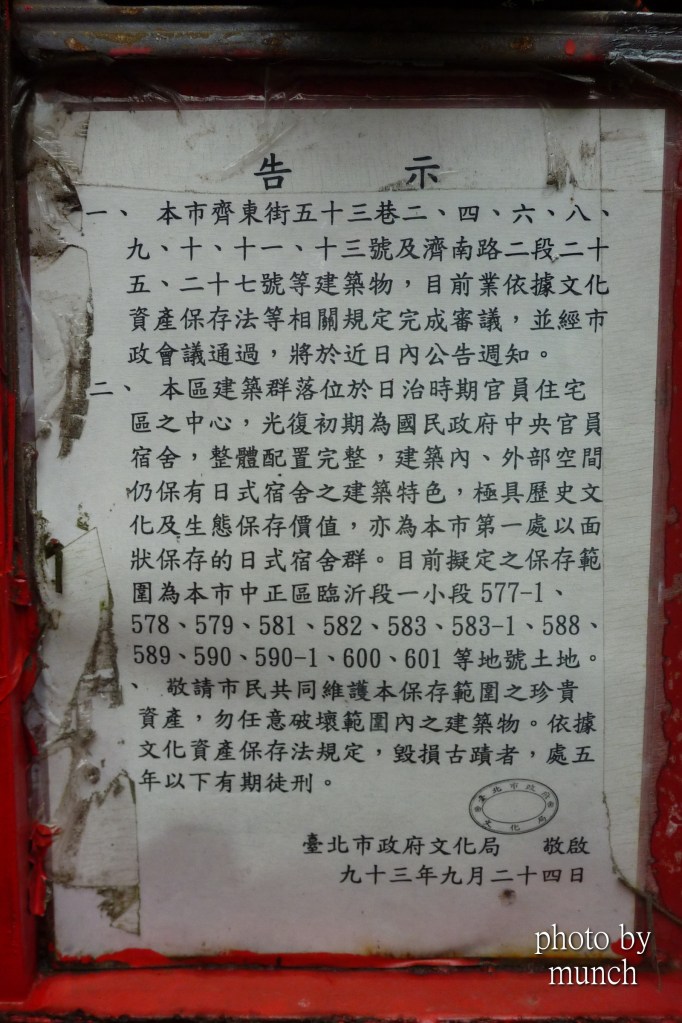 告 示
一、 本市齊東街五十三巷二、四、六、八、
九、十、十一、十三號及濟南路二段二十
五、二十七號等建築物，目前業依據文化
資產保存法等相關規定完成審議，並經市
政會議通過，將於近日內公告週知。
二、 本區建築群落位於日治時期官員住宅
區之中心，光復初期為國民政府中央官員
宿舍，整體配置完整，建築內、外部空間
仍保有日式宿舍之建築特色，極具歷史文
化及生態保存價值，亦為本市第一處以面
狀保存的日式宿舍群。目前擬定之保存範
圍為本市中正區臨沂段一小段 577-1、
578、579、581、582、583、583-1、588、
589、590、590-1、600、601 等地號土地。
、 敬請市民共同維護本保存範圍之珍貴
資產，勿任意破壞範圍內之建築物。依據
文化資產保存法規定，毀損古蹟者，處五
年以下有期徒刑。
臺北市政府
文化局
臺北市政府文化局 敬啟
九十三年九月二十四日
photo by
munch